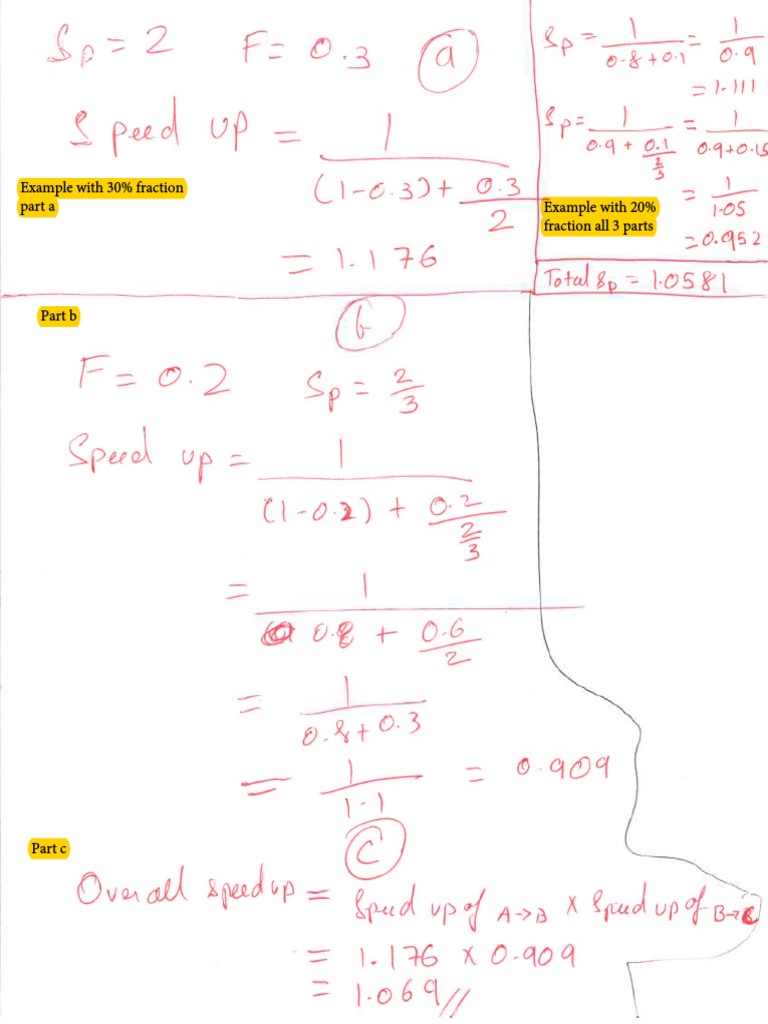 Sp = 2 F = 0.3 (a)
Speed up = 1 / ((1-0.3) + 0.3/2)
Example with 30% fraction
part a
= 1.176
Sp = 1/(0.8+0.1) = 1/0.9
= 1.111
Sp = 1/(0.9 + 0.1/(2/3)) = 1/(0.9+0.15)
= 1/1.05
= 0.952
Example with 20%
fraction all 3 parts
Total Sp = 1.0581
Part b
(b)
F = 0.2 Sp = 2/3
Speed up = 1 / ((1-0.2) + 0.2/(2/3))
= 1 / (0.8 + 0.6/2)
= 1 / (0.8+0.3)
= 1/1.1 = 0.909
Part c
(C)
Over all speed up = Speed up of A→B x Speed up of B→C
= 1.176 x 0.909
= 1.069//